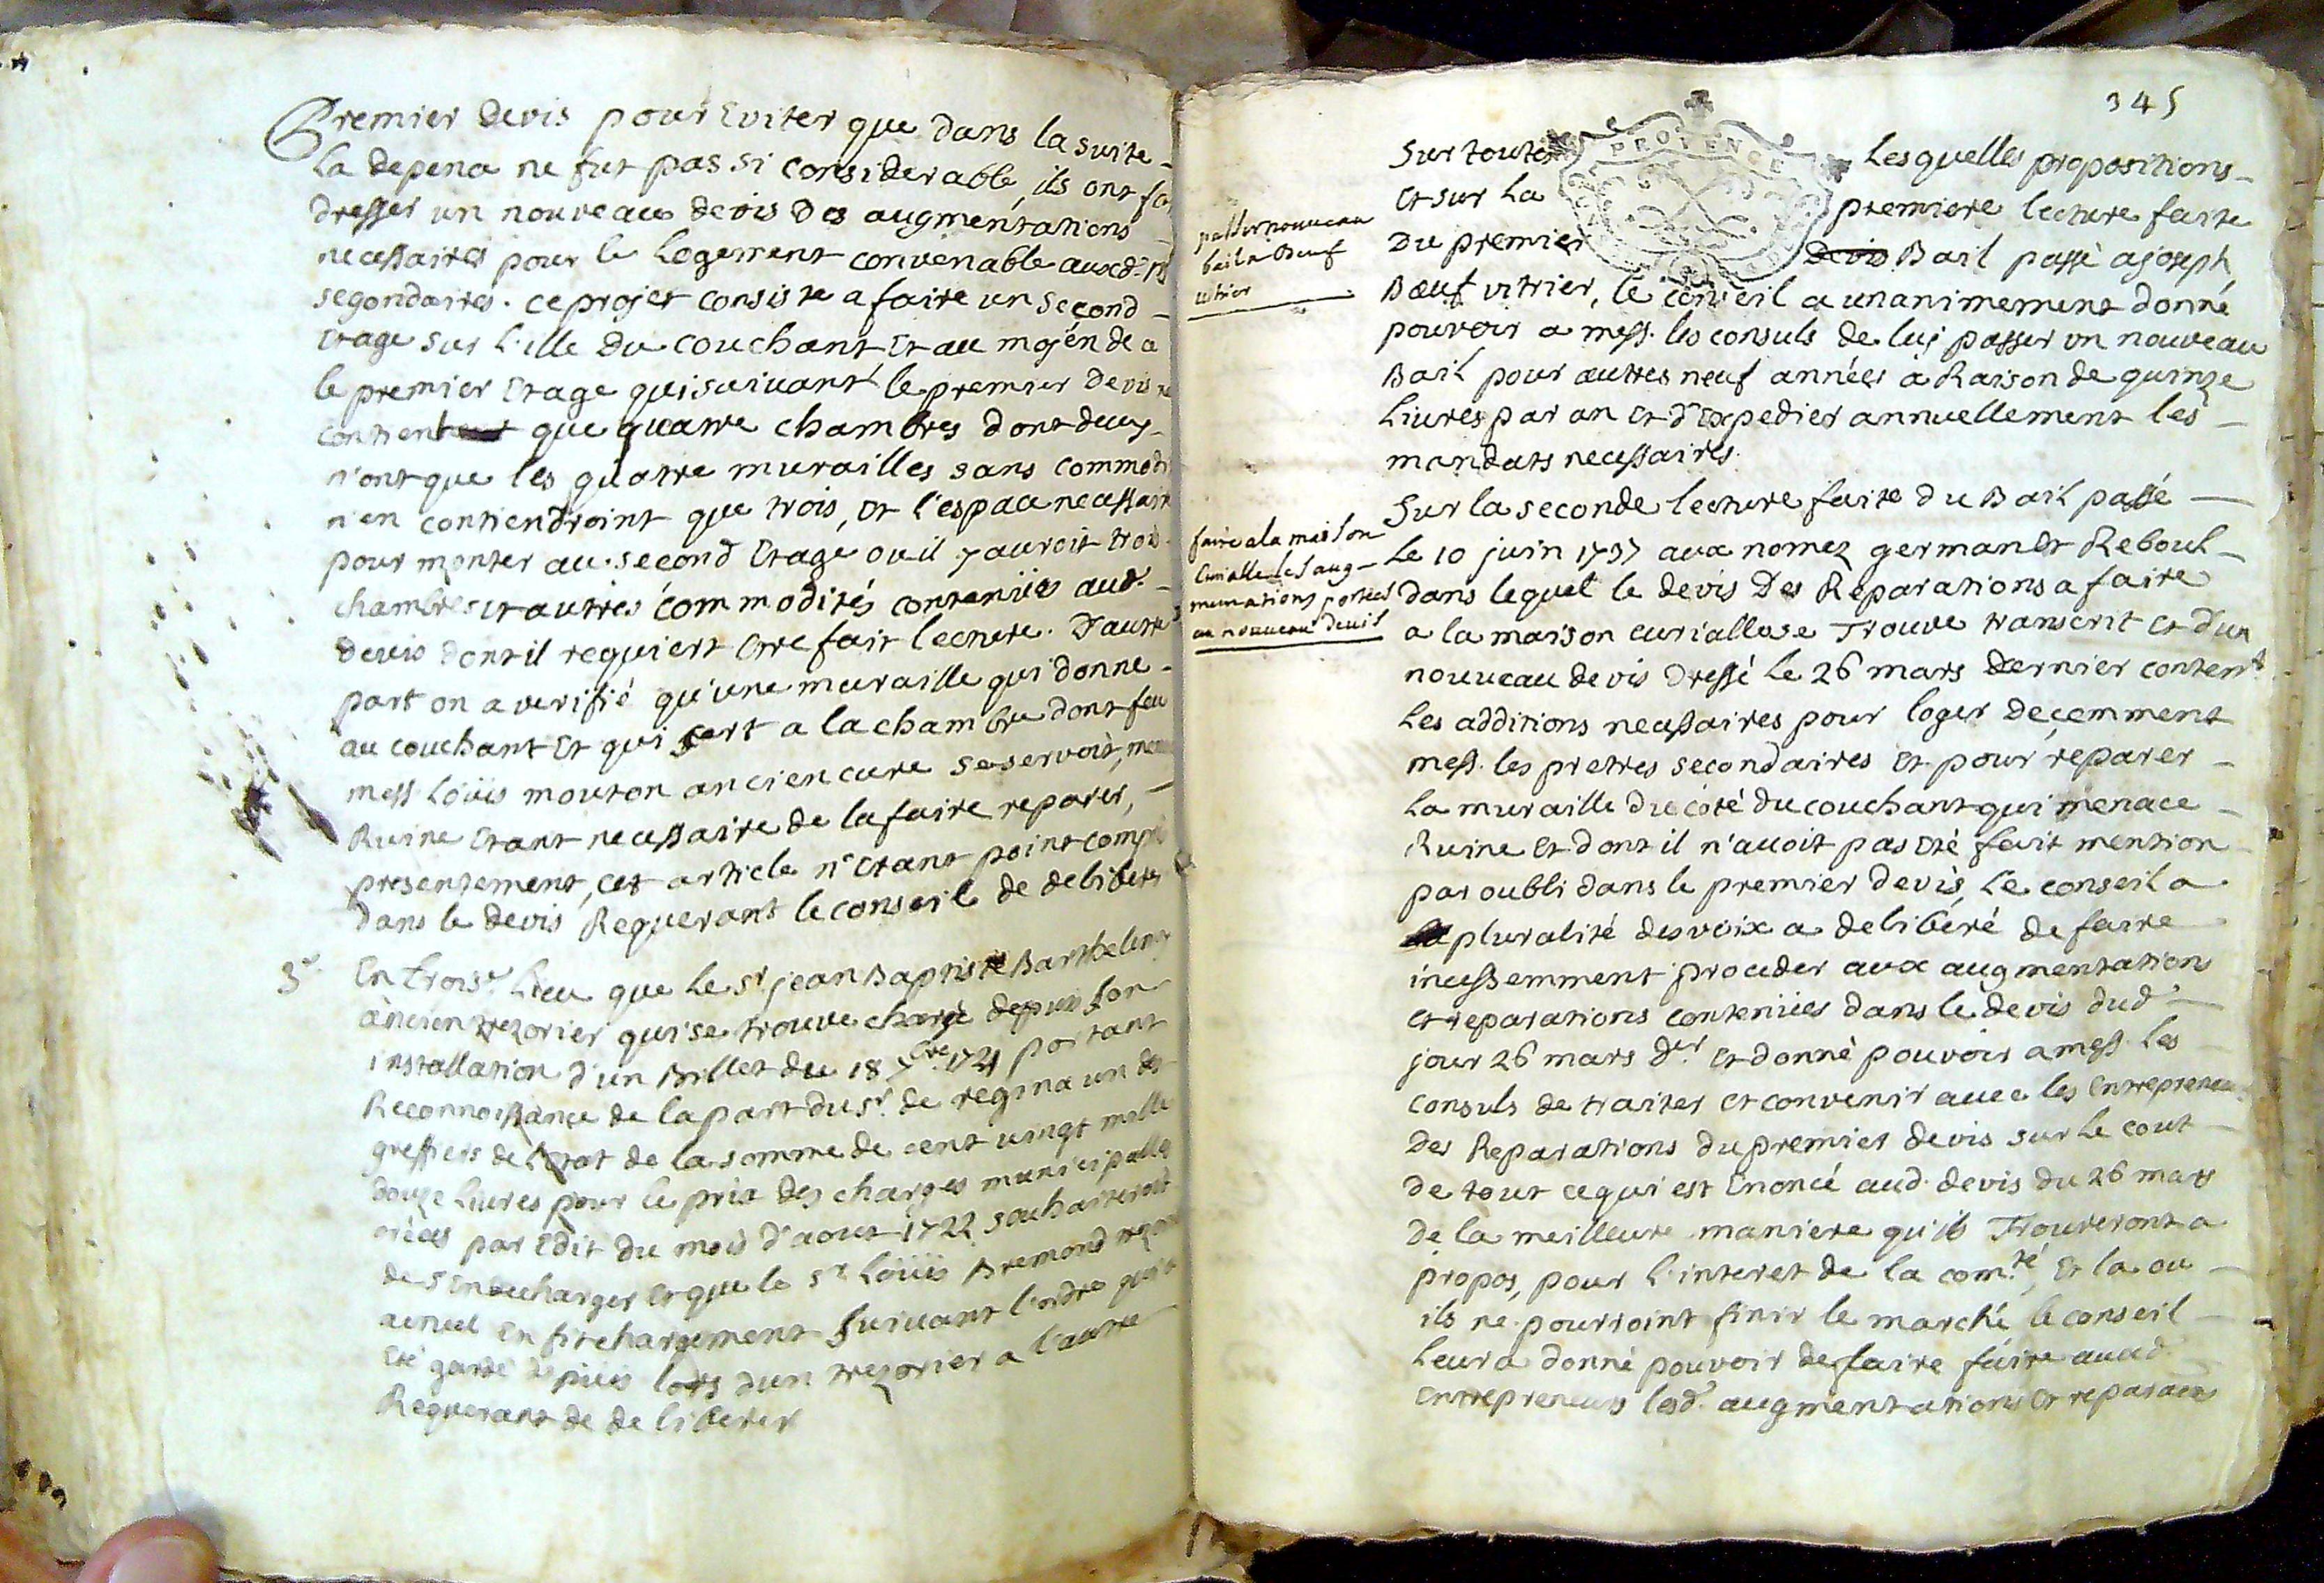 Premier devis pour eviter que dans la suite
la depence ne fut pas si considerable, ils ont
dresser un nouveau devis des augmentations
necessaires pour le logement convenable auxd.
segondaires. ce projet consiste a faire un second
etage sur l'ille du couchant et au mojén de a
le premier etage qui suivant le premier devis
contien que quatre chambres dont deux
n'ont que les quatre murailles sans
n'en contiendroint que trois, et l'espace necessaire
pour monter au second etage ou il y auroit trois
chambres et autres commodités contenües aud.
devis dont il requiert etre fait lecture. D'autre
part on a verifié qu'une muraille qui donne
au couchant et qui sert a la chambre dont feu
mess. Loüis mouton ancien cure se servoit,
Ruine etant necessaire de la faire reparer,
presentement, cet article n'etant point
dans le devis Requerant le conseil de deliberer
3e. En trois.e lieu que le Sr. jean Baptiste Barthelemy
àncien trezorier qui se trouve chargé depuis son
installation d'un Billet du 18 1724 portant
Reconnoissance de la part du Sr. de regina un des
greffiers de l'etat de la somme de cent vingt mille
douze livres pour le prix des charges municipalles
créées par edit du mois d'aout 1722 souhaiteroit
de s'en decharger et que le Sr Loüis Bremond
actuel en fit chargement suivant l'ordre qui a
eté gardé depuis lors d'un trezorier a l'autre
Requerant de deliberer
345
PROVENCE
Sur toutes Lesquelles propositions
et sur la premiere lecture faite
passer nouveau
bail a Bœuf
vitrier
Du premier Devis Bail passé a joseph
Bœuf vitrier, le conseil a unanimement donné
pouvoir a mess. les consuls de luj passer un nouveau
Bail pour autres neuf années a Raison de quinze
Livres par an et d'expedier annuellement les
mandats necessaires.
Sur la seconde lecture faite du Bail passé
faire a la maison
curialle les aug-
mentations portées
au nouveau devis
Le 10 juin 1737 aux nomez german et Reboul
dans lequel le devis Des Reparations a faire
a la maison curialle se Trouve transcrit et d'un
nouveau devis dressé le 26 mars dernier conten.t
Les additions necessaires pour loger decemment
mess. les pretres secondaires et pour reparer
La muraille du côté du couchant qui menace
Ruine et dont il n'avoit pas eté fait mention
par oubli dans le premier devis, Le conseil a
pluralité des voix a deliberé de faire
incessemment proceder aux augmentations
et reparations contenües dans le devis dud.
jour 26 mars der. et donné pouvoir a mess. Les
consuls de traiter et convenir avec les Entrepreneu
Des Reparations du premier devis sur le cout
de tout ce qui est Enoncé aud. devis du 26 mars
de la meilleure maniere qu'ils Trouveront a
propos, pour l'interet de la com.té, Et la ou
ils ne pourroint finir le marché le conseil
Leur a donné pouvoir de faire faire auxd.
Entrepreneurs lesd. augmentations et reparaons